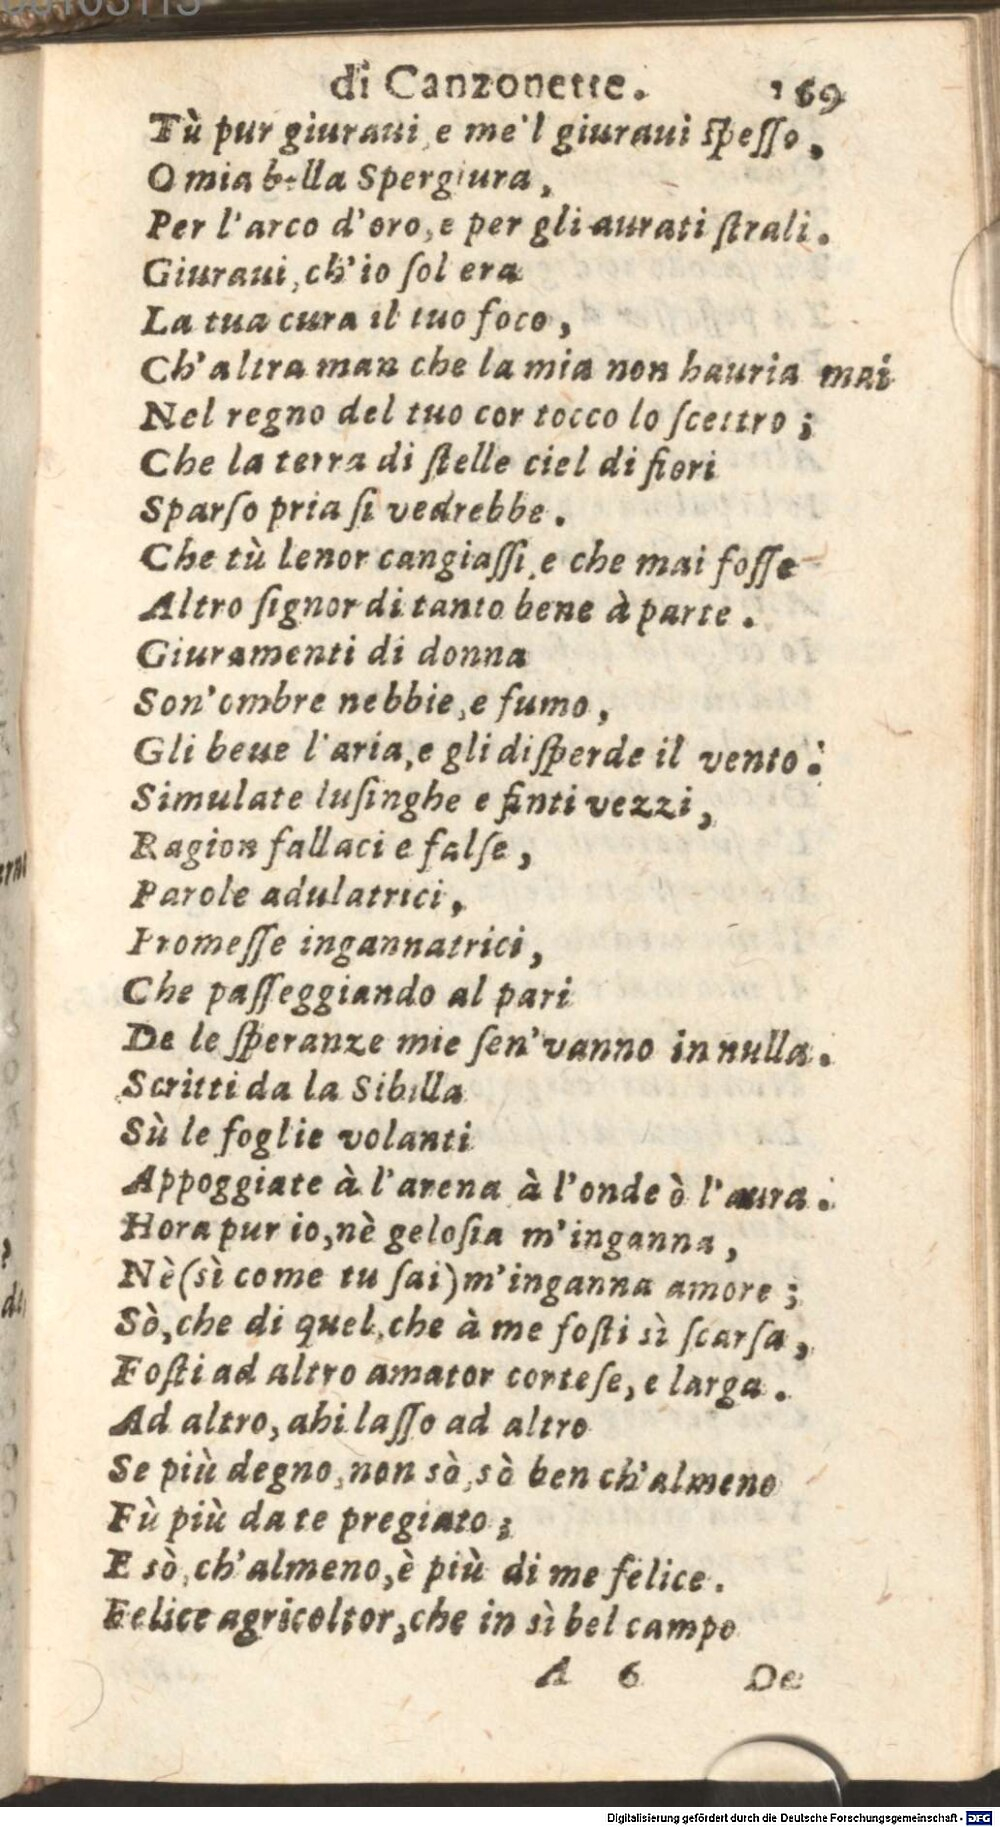 di Canzonette. 169
Tù pur giuraui, e me'l giuraui ſpeſſo,
O mia bella Spergiura,
Per l'arco d'oro, e per gli aurati ſtrali.
Giuraui, ch'io ſol era
La tua cura il tuo foco,
Ch'altra man che la mia non hauria mai
Nel regno del tuo cor tocco lo ſcettro;
Che la terra di ſtelle ciel di fiori
Sparſo pria ſi vedrebbe.
Che tù tenor cangiaſſi, e che mai foſſe
Altro ſignor di tanto bene à parte.
Giuramenti di donna
Son'ombre nebbie, e fumo,
Gli beue l'aria, e gli diſperde il vento:
Simulate luſinghe e finti vezzi,
Ragion fallaci e falſe,
Parole adulatrici,
Promeſſe ingannatrici,
Che paſſeggiando al pari
De le ſperanze mie ſen'vanno in nulla.
Scritti da la Sibilla
Sù le foglie volanti
Appoggiate à l'arena à l'onde ò l'aura.
Hora pur io, nè geloſia m'inganna,
Nè (sì come tu ſai) m'inganna amore;
Sò, che di quel, che à me foſti sì ſcarſa,
Foſti ad altro amator corteſe, e larga.
Ad altro, ahi laſſo ad altro
Se più degno, non sò, sò ben ch'almeno
Fù più da te pregiato;
E sò, ch'almeno, è più di me felice.
Felice agricoltor, che in sì bel campo
A 6 De
Digitalisierung gefördert durch die Deutsche Forschungsgemeinschaft - DFG